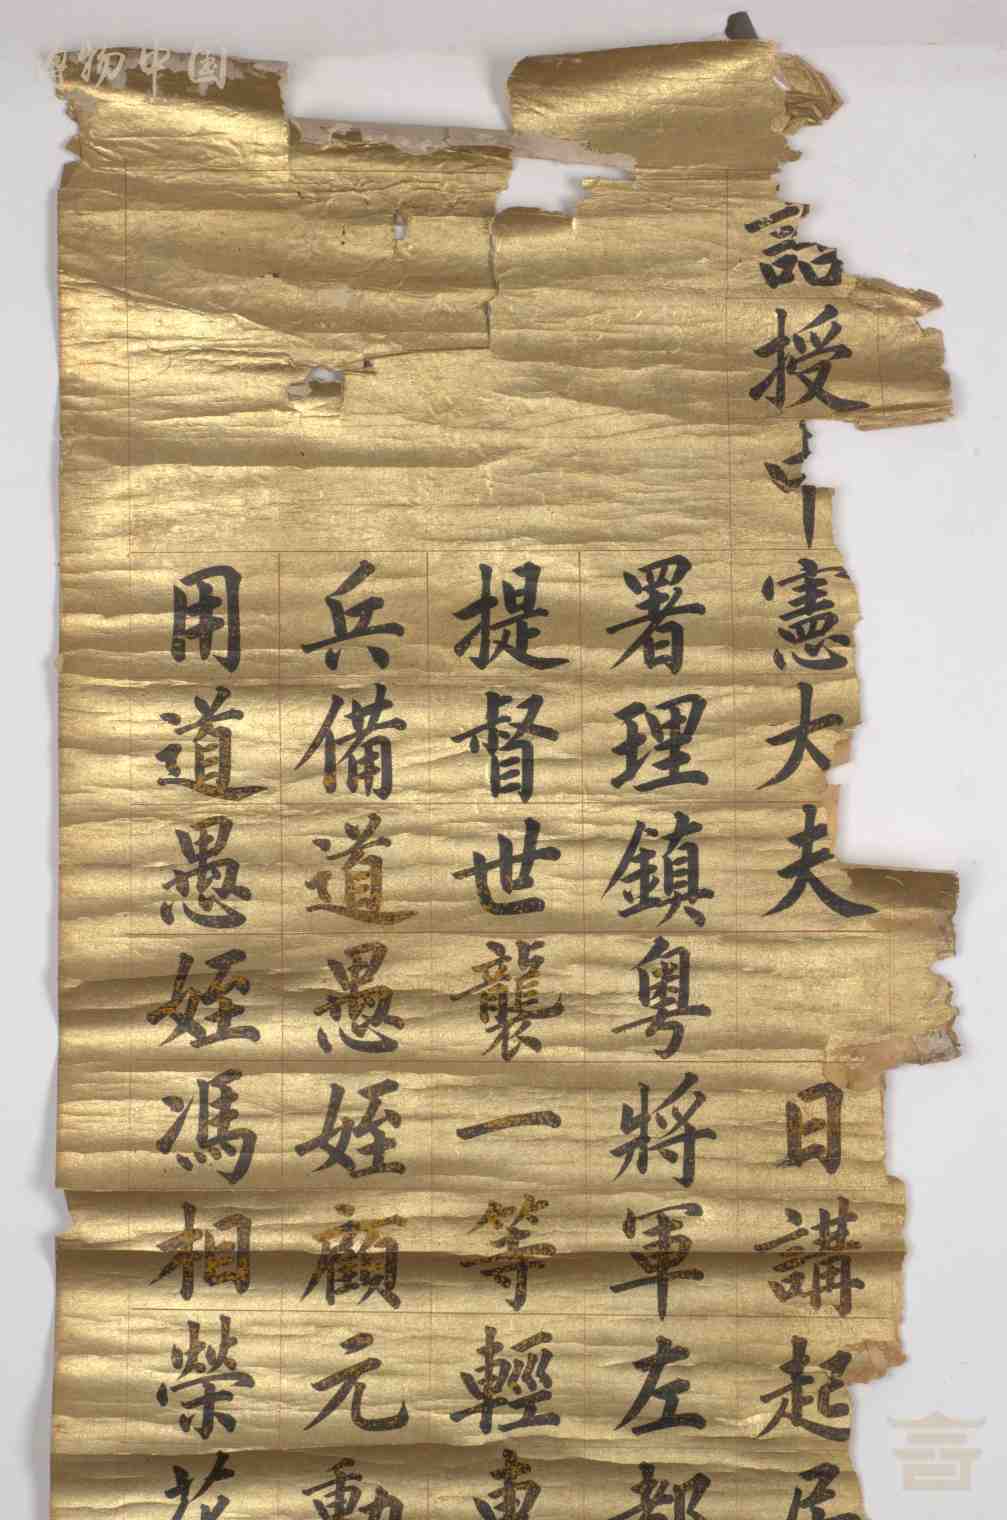 誥授中憲大夫日講起居
署理鎮粵將軍左都
提督世襲一等輕車
兵備道愚姪顧元勳
用道愚姪馮相榮花
博物中国